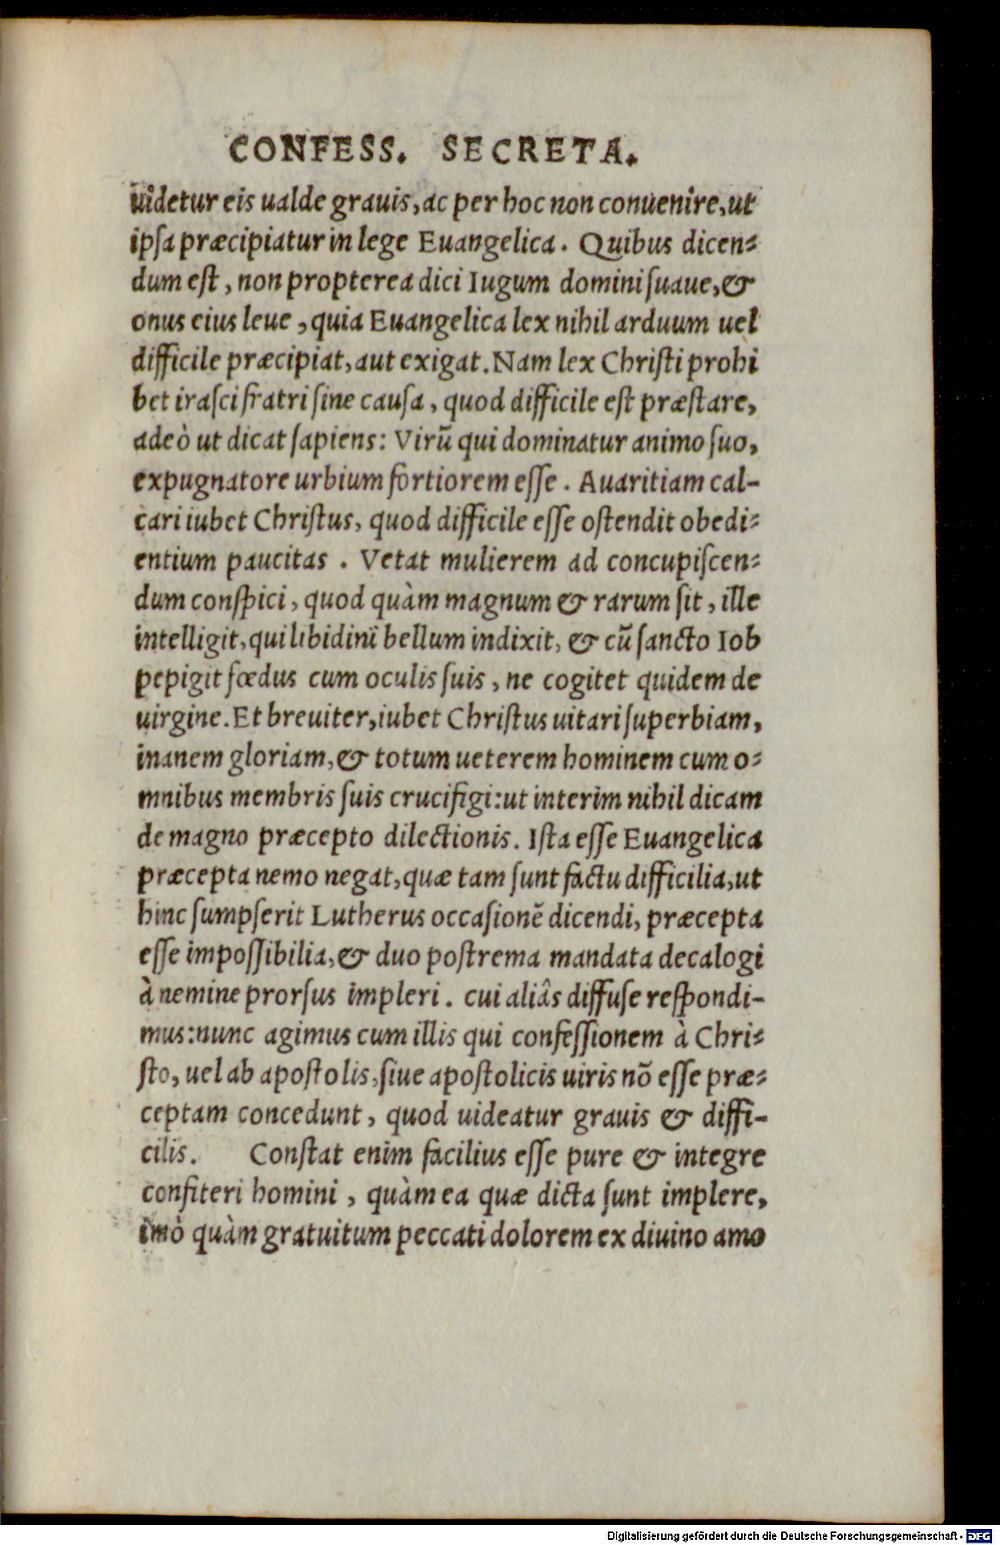 CONFESS. SECRETA.
uidetur eis ualde grauis, ac per hoc non conuenire, ut
ipsa præcipiatur in lege Euangelica. Quibus dicen-
dum est, non propterea dici Iugum domini suaue, &
onus eius leue, quia Euangelica lex nihil arduum uel
difficile præcipiat, aut exigat. Nam lex Christi prohi
bet irasci fratri sine causa, quod difficile est præstare,
adeò ut dicat sapiens: Virũ qui dominatur animo suo,
expugnatore urbium fortiorem esse. Auaritiam cal-
cari iubet Christus, quod difficile esse ostendit obedi-
entium paucitas. Vetat mulierem ad concupiscen-
dum conspici, quod quàm magnum & rarum sit, ille
intelligit, qui libidini bellum indixit, & cũ sancto Iob
pepigit fœdus cum oculis suis, ne cogitet quidem de
uirgine. Et breuiter, iubet Christus uitari superbiam,
inanem gloriam, & totum ueterem hominem cum o-
mnibus membris suis crucifigi: ut interim nihil dicam
de magno præcepto dilectionis. Ista esse Euangelica
præcepta nemo negat, quæ tam sunt factu difficilia, ut
hinc sumpserit Lutherus occasionẽ dicendi, præcepta
esse impossibilia, & duo postrema mandata decalogi
à nemine prorsus impleri. cui aliâs diffuse respondi-
mus: nunc agimus cum illis qui confessionem à Chri-
sto, uel ab apostolis, siue apostolicis uiris nõ esse præ-
ceptam concedunt, quod uideatur grauis & diffi-
cilis. Constat enim facilius esse pure & integre
confiteri homini, quàm ea quæ dicta sunt implere,
imò quàm gratuitum peccati dolorem ex diuino amo
Digitalisierung gefördert durch die Deutsche Forschungsgemeinschaft - DFG